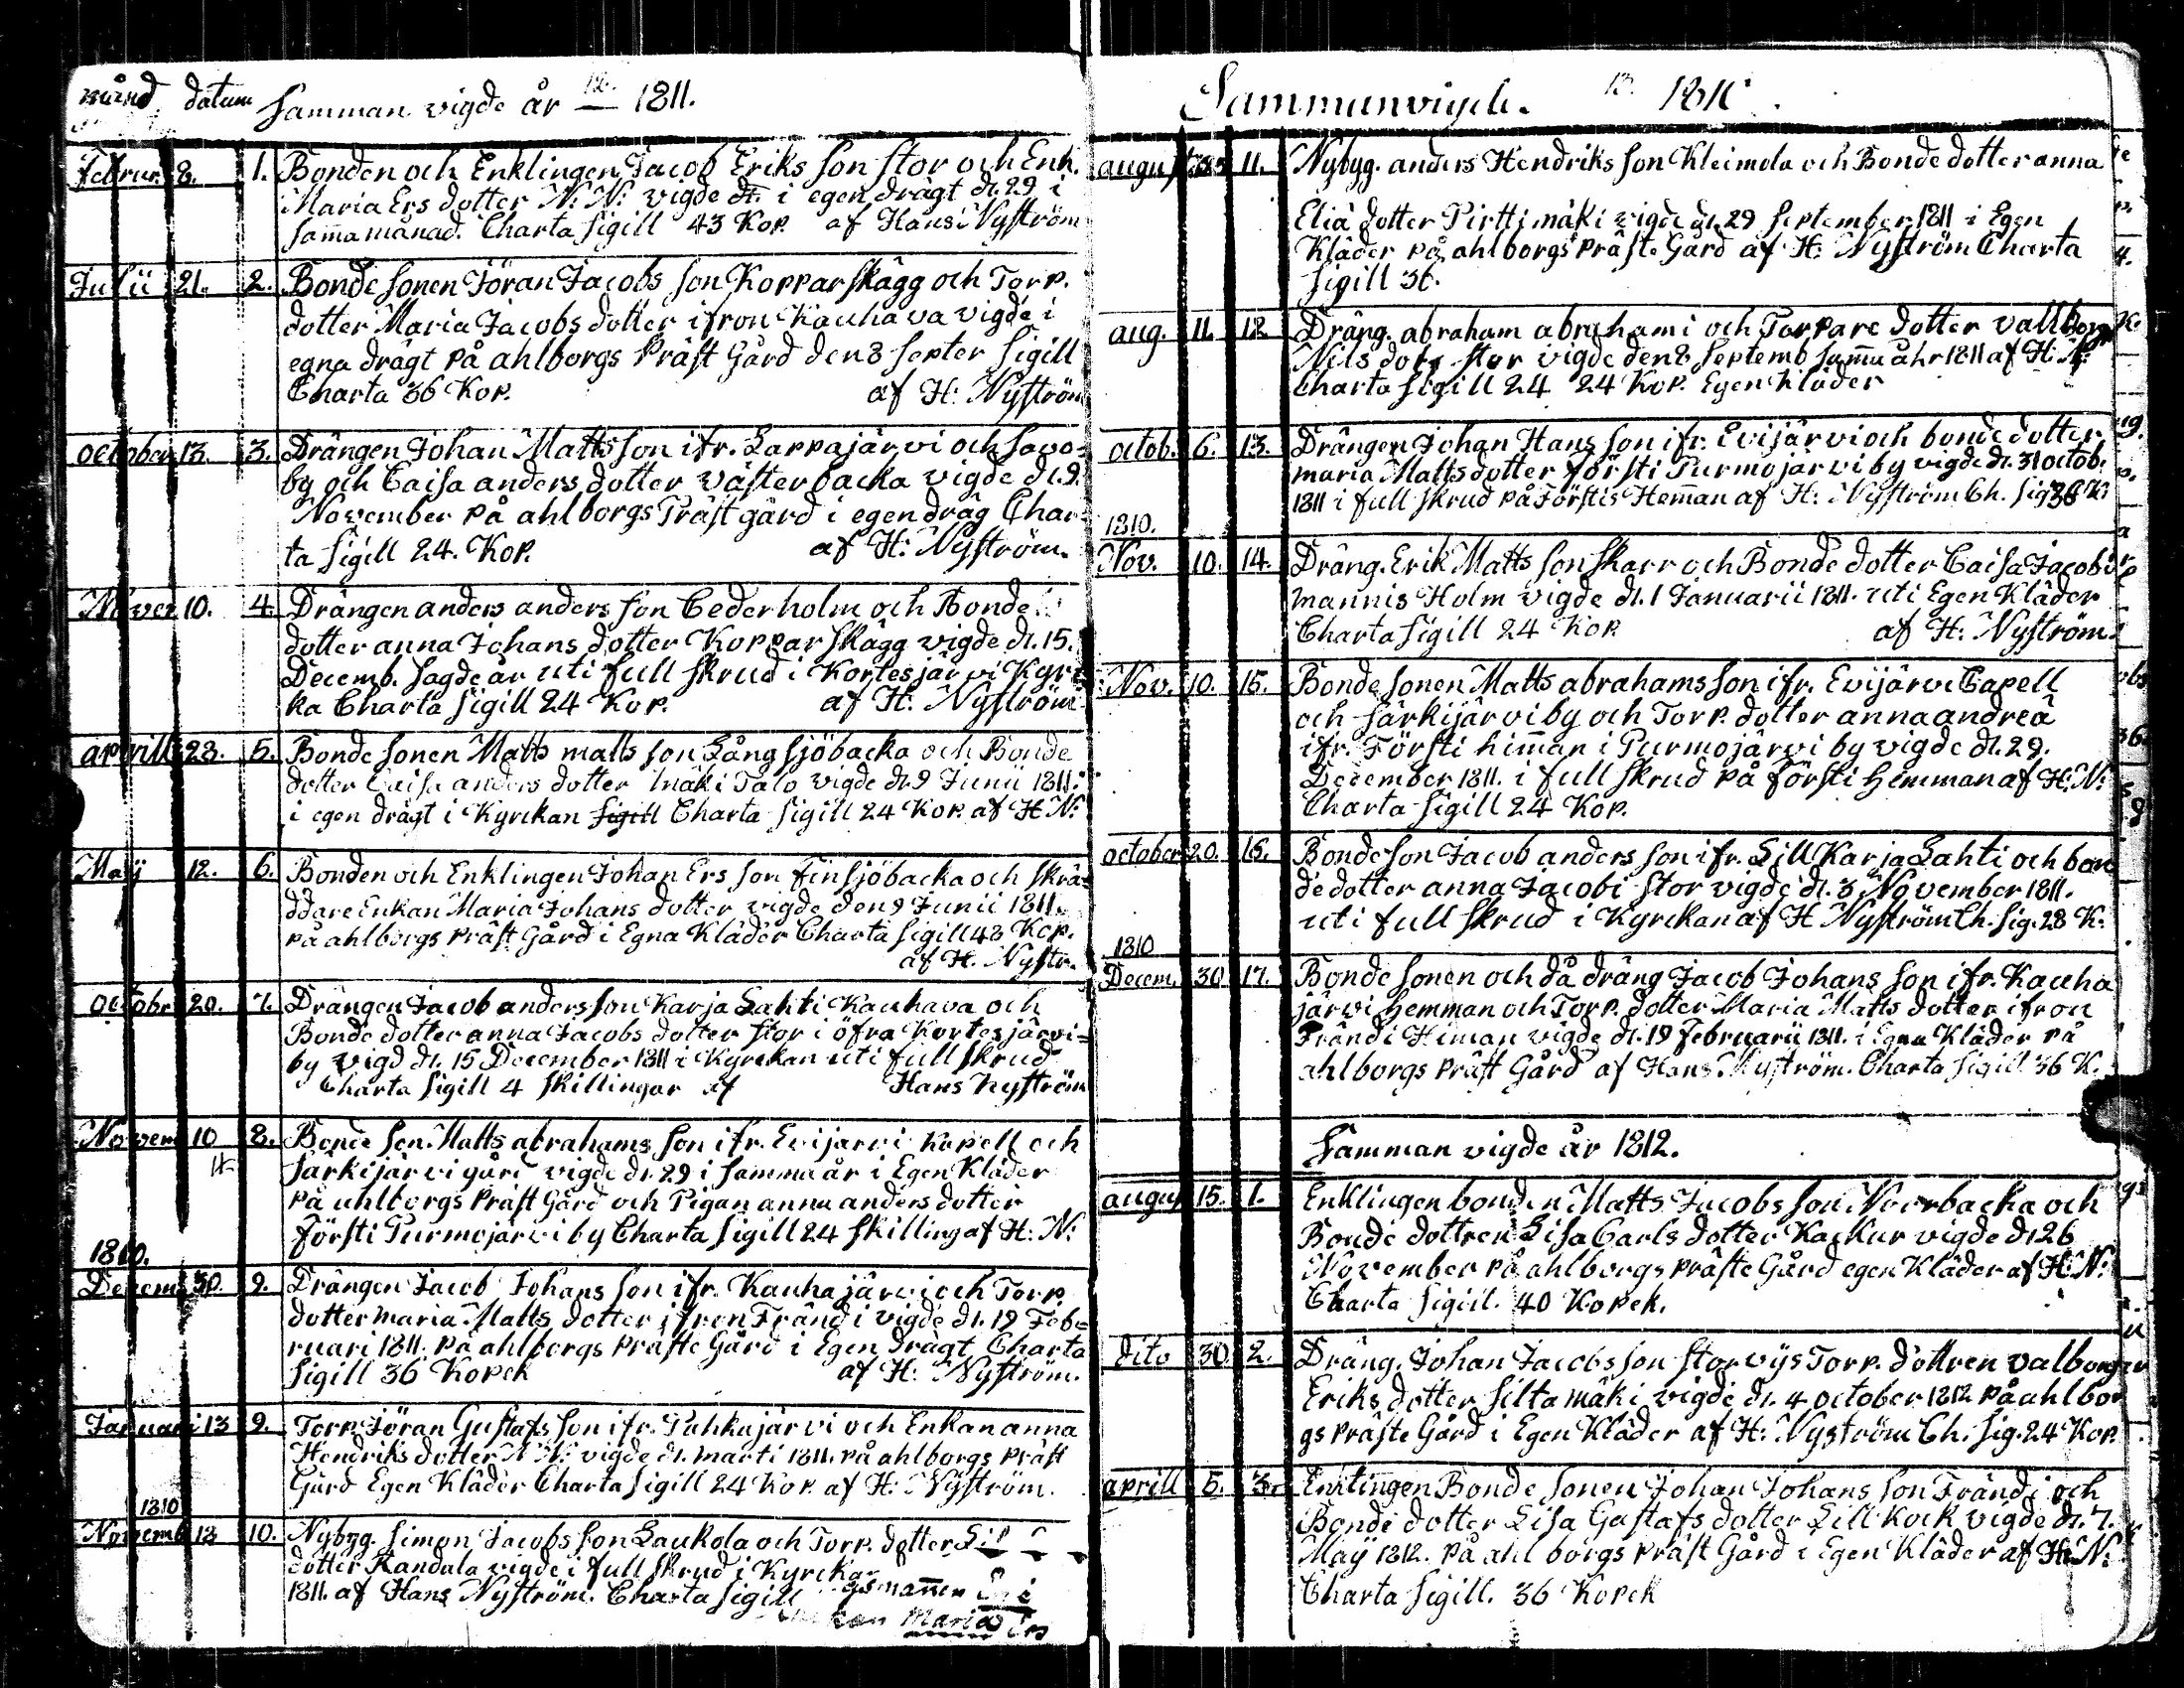 månd. datum Samman vigde år 12. 1811.
Februr. 8. 1. Bonden och Enklingen Jacob Eriks son Stor och Enk.
Maria Ers dotter N: N: vigde dt. i egen drägt d. 29 i
samma månad. Charta Sigill 43 Kop. af Hans Nyström
Julii 21. 2. Bonde sonen Jöran Jacobs son Kopparskägg och Torp.
dotter Maria Jacobs dotter ifron Kauhava vigde i
egna drägt på ahlborgs Präst Gård den 8 Septer Sigill
Charta 36 Kop. af H: Nyström
October 13. 3. Drängen Johan Matts son ifr. Lappajärvi och Savo-
by och Caisa anders dotter Västerbacka vigde d. 9.
November på ahlborgs Präst gård i egen dräg Char-
ta Sigill 24. Kop. af H: Nyström.
Nover 10. 4. Drängen anders anders son Cederholm och Bonde
dotter anna Johans dotter Kopparskägg vigde d. 15.
Decemb. sagde år uti full skrud i Kortesjärvi Kyri
ka Charta Sigill 24 Kop. af H: Nyström
aprill 28. 5. Bonde sonen Matts matts son Långsjöbacka och Bonde
dotter Caisa anders dotter Mäki Talo vigde d. 9 Junii 1811.
i egen drägt i Kyrckan Sigill Charta Sigill 24 Kop. af H N:
Maij 12. 6. Bonden och Enklingen Johan Ers son Finsjöbacka och skrä-
ddare Enkan Maria Johans dotter vigde den 9 Junii 1811.
på ahlborgs Präst Gård i Egna Kläder Charta Sigill 48 Kop.
af H. Nystr.
Octobr 20. 7. Drängen Jacob anders son Karja Lahti Kauhava och
Bonde dotter anna Jacobs dotter Stor i öfra Kortesjärvi-
by vigd d. 15 December 1811 i Kyrckan uti full skrud
Charta Sigill 4 skillingar af Hans Nyström
Novem 10 8. Bonde son Matts abrahams son ifr. Evijarvi Kapell och
Särkijärvi gård vigde d. 29 i samma år i Egen Kläder
på ahlborgs Präst Gård och Pigan anna anders dotter
Försti Purmojärvi by Charta Sigill 24 skilling af H: N:
1810.
Decem 30. 9. Drängen Jacob Johans son ifr. Kauhajärvi och Torp.
dotter maria Matts dotter ifron Frändi vigde d. 19 Feb-
ruari 1811. på ahlborgs Präste Gård i Egen drägt Charta
Sigill 36 Kopek af H: Nyström.
Januari 13 9. Torp. Jöran Gustafs son ifr. Puhkajärvi och Enkan anna
Hendriks dotter N N: vigde d. marti 1811. på ahlborgs Präst
Gård Egen Kläder Charta Sigill 24 Kop. af H: Nyström.
1810
Novemb 13 10. Nybyg. Simon Jacobs son Laukola och Torp. dotter
dotter Randala vigde i full skrud i Kyrcka
1811. af Hans Nyström. Charta Sigill
Maria Ers
Sammanvigde. 13. 1811.
august 11. Nybyg. anders Hendriks son Kleimola och Bonde dotter anna
Eliä dotter Pirttimäki vigde d. 29 September 1811 i Egen
Kläder på ahlborgs Präste Gård af H: Nyström Charta
Sigill 36.
aug. 11. 12 Dräng. abraham abrahami och Torpare dotter Vallborg
Nils dotr Stor vigde den 8 Septemb samma åhr 1811 af H: N:
Charta Sigill 24 24 Kop. Egen Kläder
octob. 6. 13. Drängen Johan Hans son ifr. Evijärvi och bonde dotter
maria Matts dotter Försti Purmojärvi by vigde d. 31 octob.
1811 i full skrud på Förstis Heman af H: Nyström Ch. Sig 36 K:
1810.
Nov. 10. 14. Dräng. Erik Matts son Skarr och Bonde dotter Caisa Jacobi
mannis Holm vigde d. 1 Januarii 1811. uti Egen Kläder
Charta Sigill 24 Kop. af H: Nyström.
Nov. 10. 15. Bonde sonen Matts abrahams son ifr. Evijärvi Capell
och Särkijärvi by och Torp. dotter anna andreä
ifr. Försti himan i Purmojärvi by vigde d. 29.
December 1811. i full skrud på försti Hemman af H: N:
Charta Sigill 24 Kop.
october 20. 16. Bonde son Jacob anders son ifr. Lill Karja Lahti och bon
de dotter anna Jacobi Stor vigde d. 3 November 1811.
uti full skrud i Kyrckan af H Nyström Ch. Sig. 28 K.
1810
Decem. 30 17. Bonde sonen och då dräng Jacob Johans son ifr. Kauha
järvi Hemman och Torp. dotter Maria Matts dotter ifron
Frändi Himan vigde d. 19 Februarii 1811. i Egna Kläder på
ahlborgs Präst Gård af Hans Nyström. Charta Sigill 36 K.
Samman vigde år 1812.
august 15. 1. Enklingen bonden Matts Jacobs son Norrbacka och
Bonde dottren Lisa Carls dotter Kackur vigde d. 26
November på ahlborgs präste Gård egen Kläder af H: N:
Charta Sigill. 40 Kopek.
dito 30 2. Dräng. Johan Jacobs son Storvijs Torp. dottren Valborg
Eriks dotter Siltamäki vigde d. 4 october 1812 på ahlbor
gs präste Gård i Egen Kläder af H: Nyström Ch. Sig. 24 Kop.
aprill 5. 3. Enklingen Bonde sonen Johan Johans son Frändi och
Bonde dotter Lisa Gustafs dotter Lill Kock vigde d. 7.
Maij 1812. på ahlborgs Präst Gård i Egen Kläder af H: N:
Charta Sigill. 36 Kopek